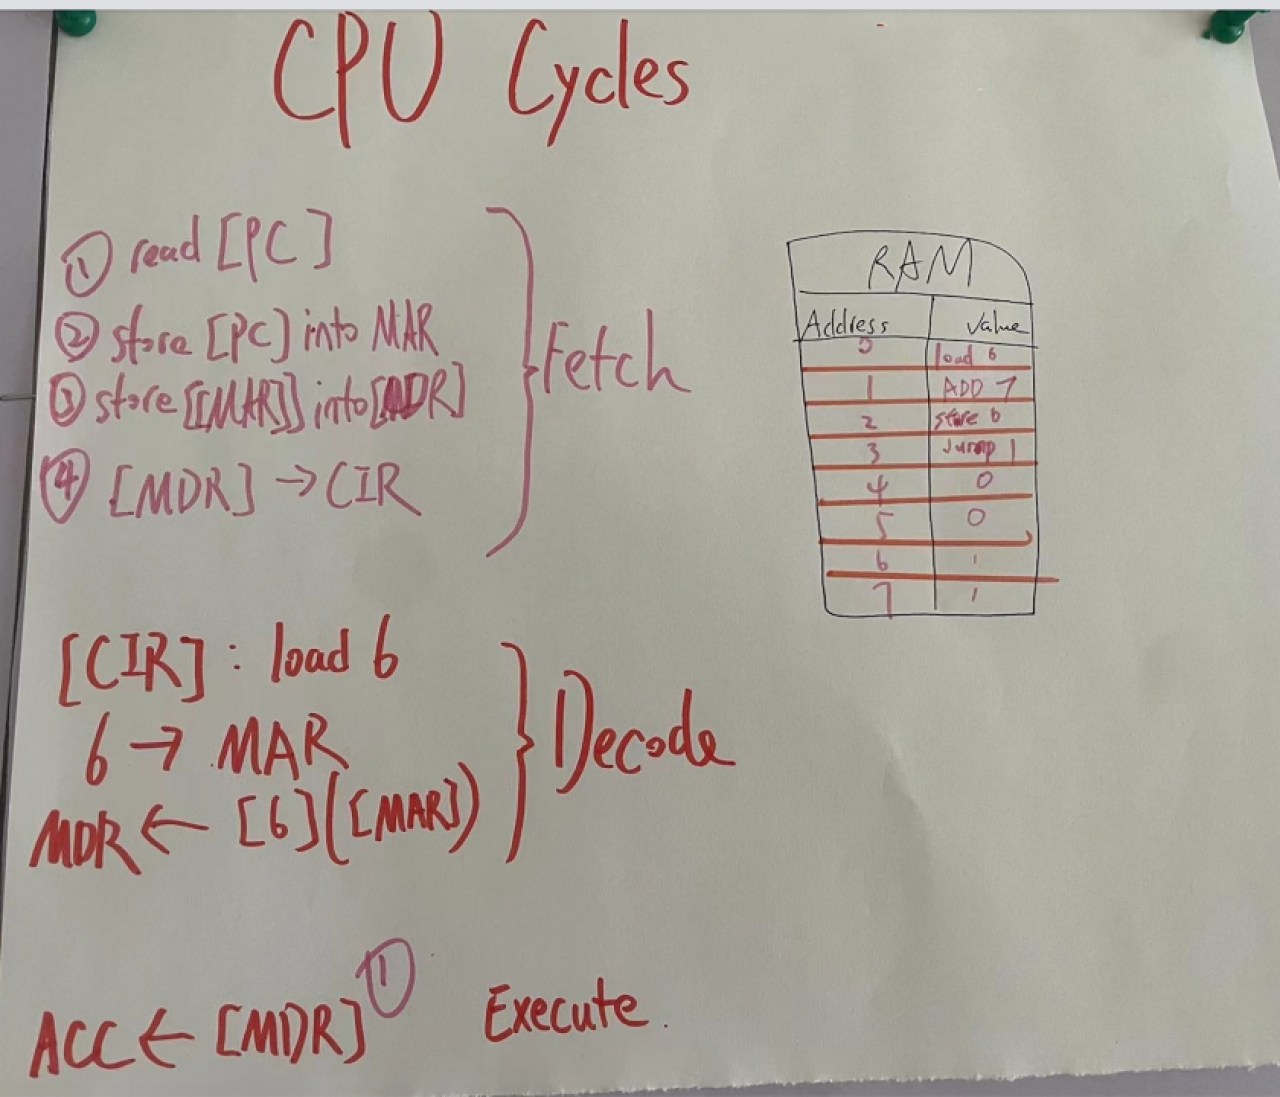 CPU Cycles
① read [PC]
② store [PC] into MAR
③ store [[MAR]] into [MDR]
④ [MDR] → CIR
Fetch
RAM
Address Value
0 load 6
1 ADD 7
2 store 6
3 Jump 1
4 0
5 0
6 1
7 1
[CIR] : load 6
6 → MAR
MDR ← [6] ([MAR])
Decode
ACC ← [MDR] ①
Execute.